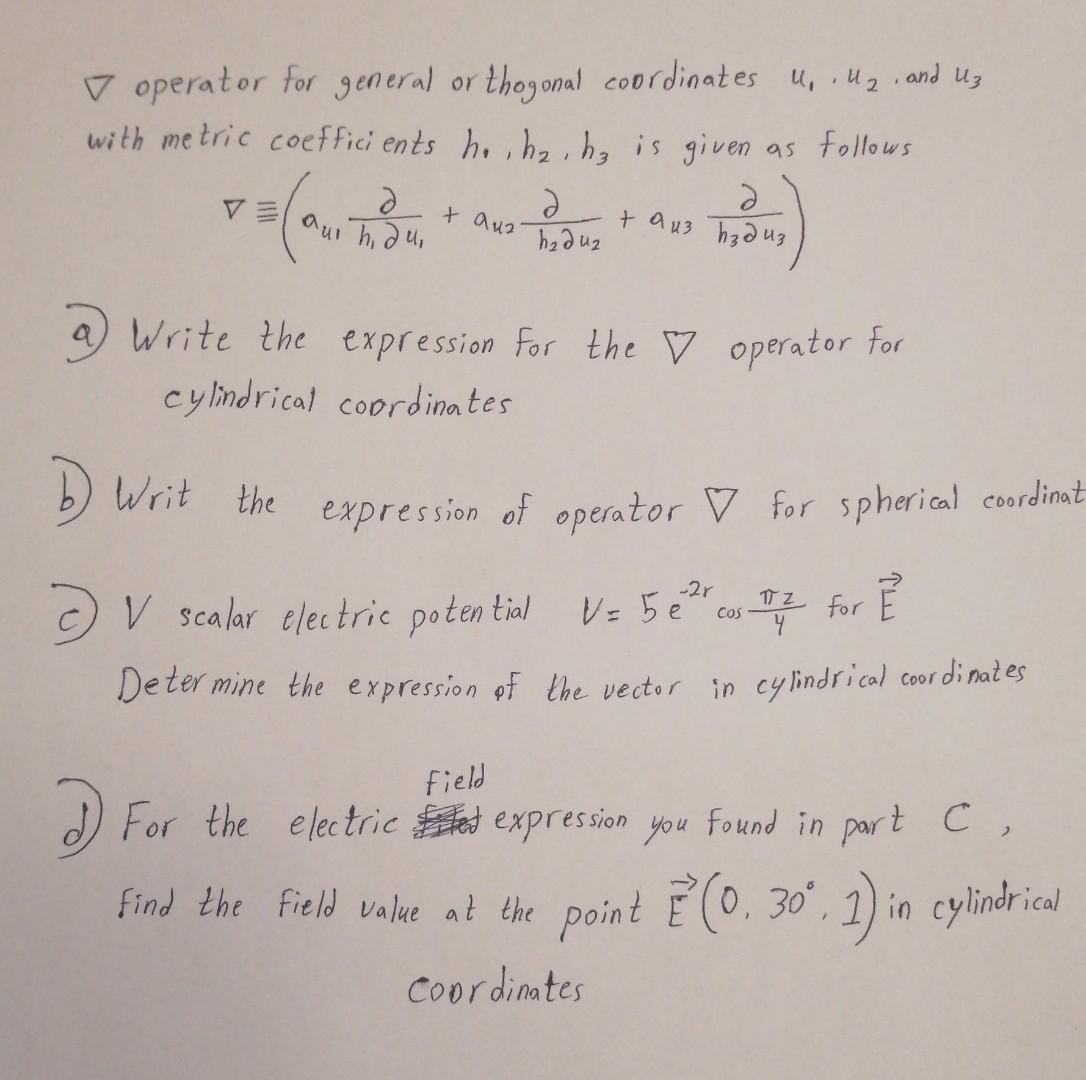 ∇ operator for general orthogonal coordinates u₁, u₂, and u₃
with metric coefficients h₁, h₂, h₃ is given as follows
∇ ≡ (a_u1 ∂/(h₁∂u₁) + a_u2 ∂/(h₂∂u₂) + a_u3 ∂/(h₃∂u₃))
a) Write the expression for the ∇ operator for
cylindrical coordinates
b) Writ the expression of operator ∇ for spherical coordinat
c) V scalar electric potential V = 5 e^(-2r) cos πz/4 for E⃗
Determine the expression of the vector in cylindrical coordinates
field
d) For the electric expression you found in part C,
find the field value at the point E⃗(0, 30°, 1) in cylindrical
coordinates